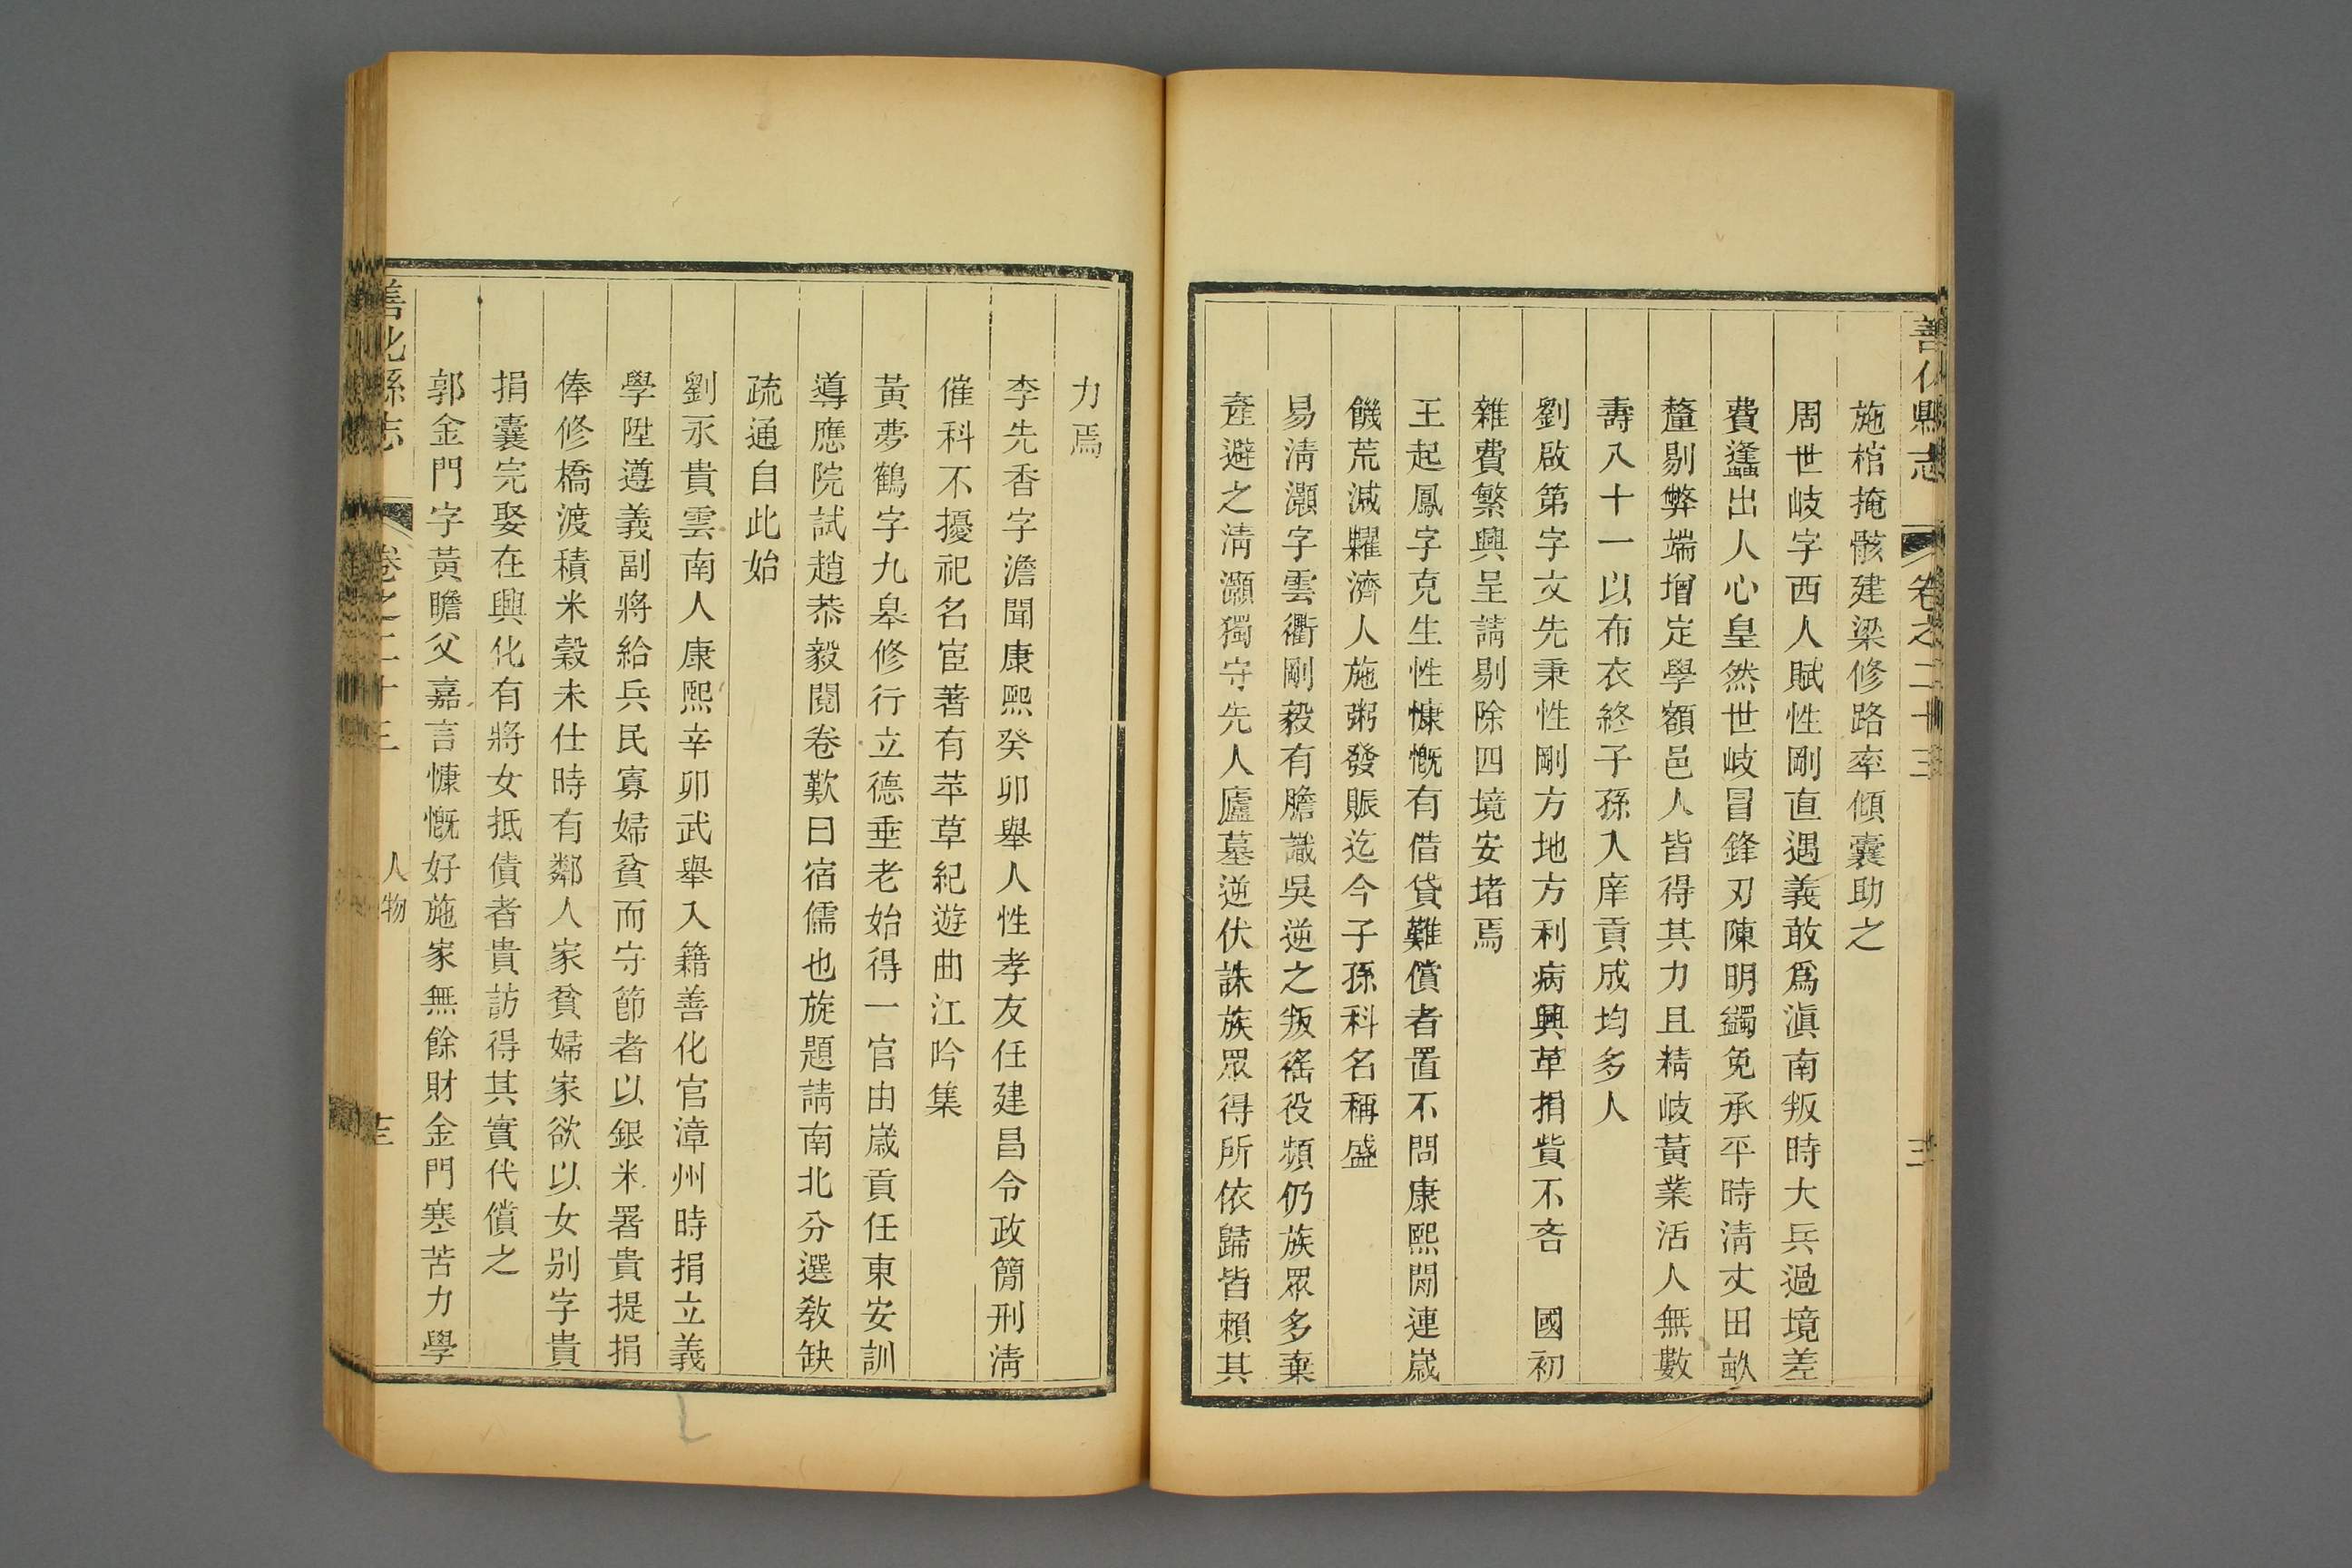 善化縣志
卷之二十三
施棺掩骸建梁修路率傾囊助之
周世岐字西人賦性剛直遇義敢爲滇南叛時大兵過境差
費蠭出人心皇然世岐冒鋒刃陳明蠲免承平時淸丈田畝
釐剔弊端增定學額邑人皆得其力且精岐黃業活人無數
壽八十一以布衣終子孫入庠貢成均多人
劉啟第字文先秉性剛方地方利病興革捐貲不吝　國初
雜費繁興呈請剔除四境安堵焉
王起鳳字克生性慷慨有借貸難償者置不問康熙閒連歲
饑荒減糶濟人施粥發賑迄今子孫科名稱盛
易淸灝字雲衢剛毅有膽識吳逆之叛徭役頻仍族眾多棄
產避之淸灝獨守先人廬墓逆伏誅族眾得所依歸皆賴其
力焉
李先香字澹聞康熙癸卯舉人性孝友任建昌令政簡刑淸
催科不擾祀名宦著有苹草紀遊曲江吟集
黃夢鶴字九皋修行立德垂老始得一官由歲貢任東安訓
導應院試趙恭毅閱卷歎曰宿儒也旋題請南北分選敎缺
疏通自此始
劉永貴雲南人康熙辛卯武舉入籍善化官漳州時捐立義
學陞遵義副將給兵民寡婦貧而守節者以銀米署貴提捐
俸修橋渡積米穀未仕時有鄰人家貧婦家欲以女别字貴
捐囊完娶在興化有將女抵債者貴訪得其實代償之
郭金門字黃瞻父嘉言慷慨好施家無餘財金門寒苦力學
善化縣志
卷之二十三
人物